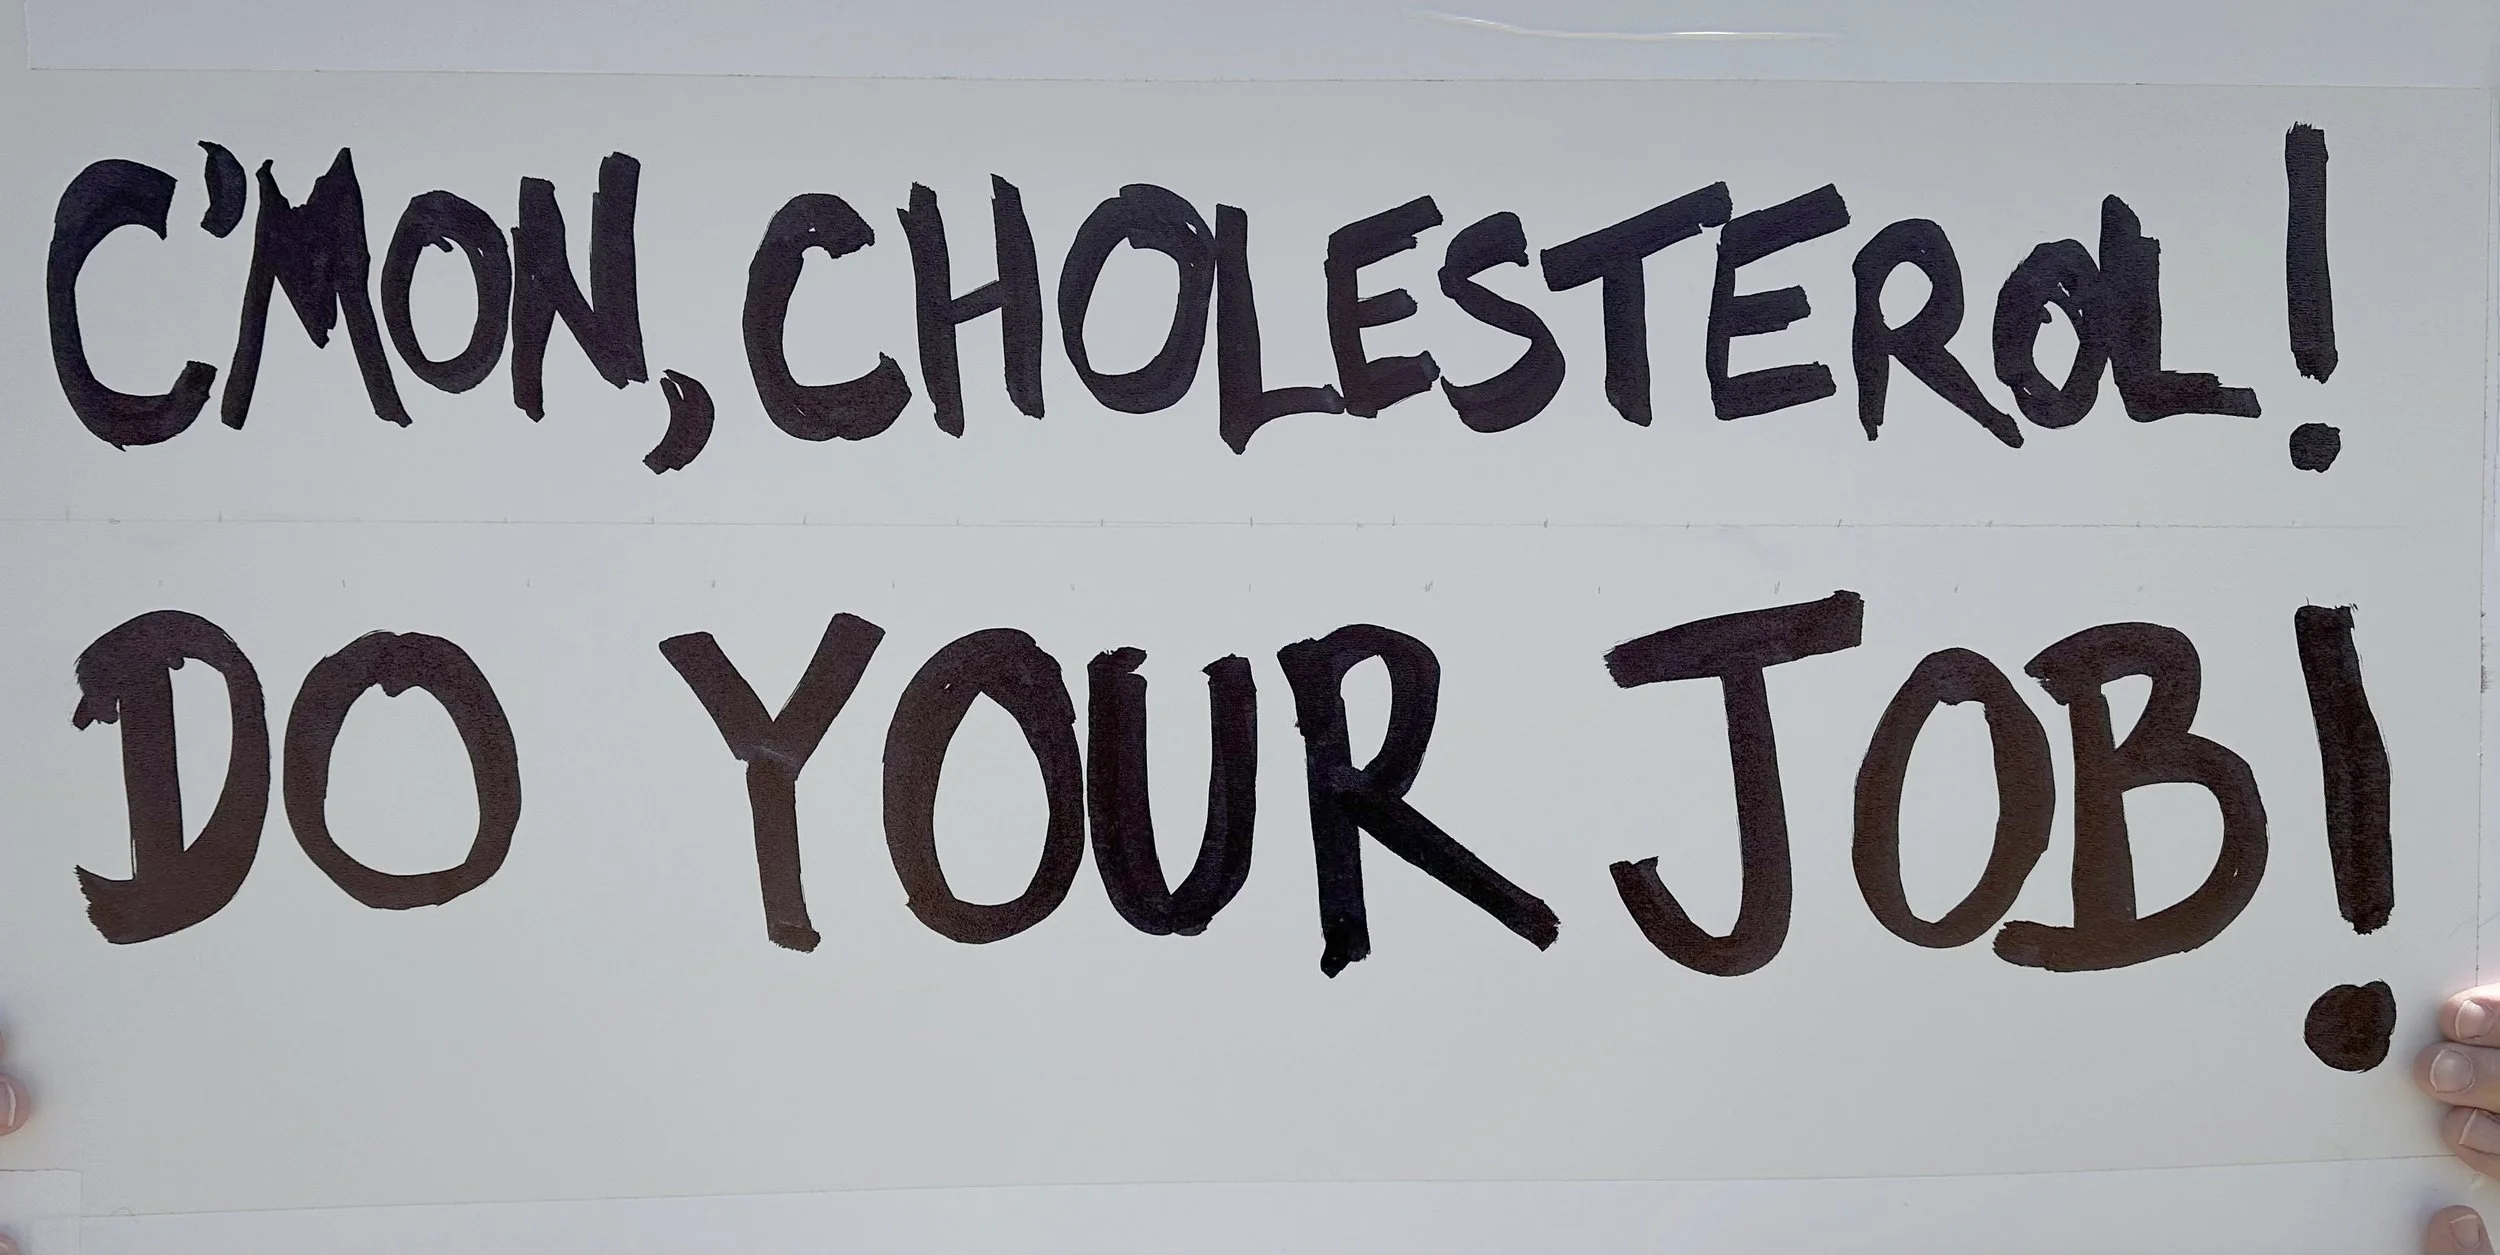 C'MON, CHOLESTEROL!
DO YOUR JOB!